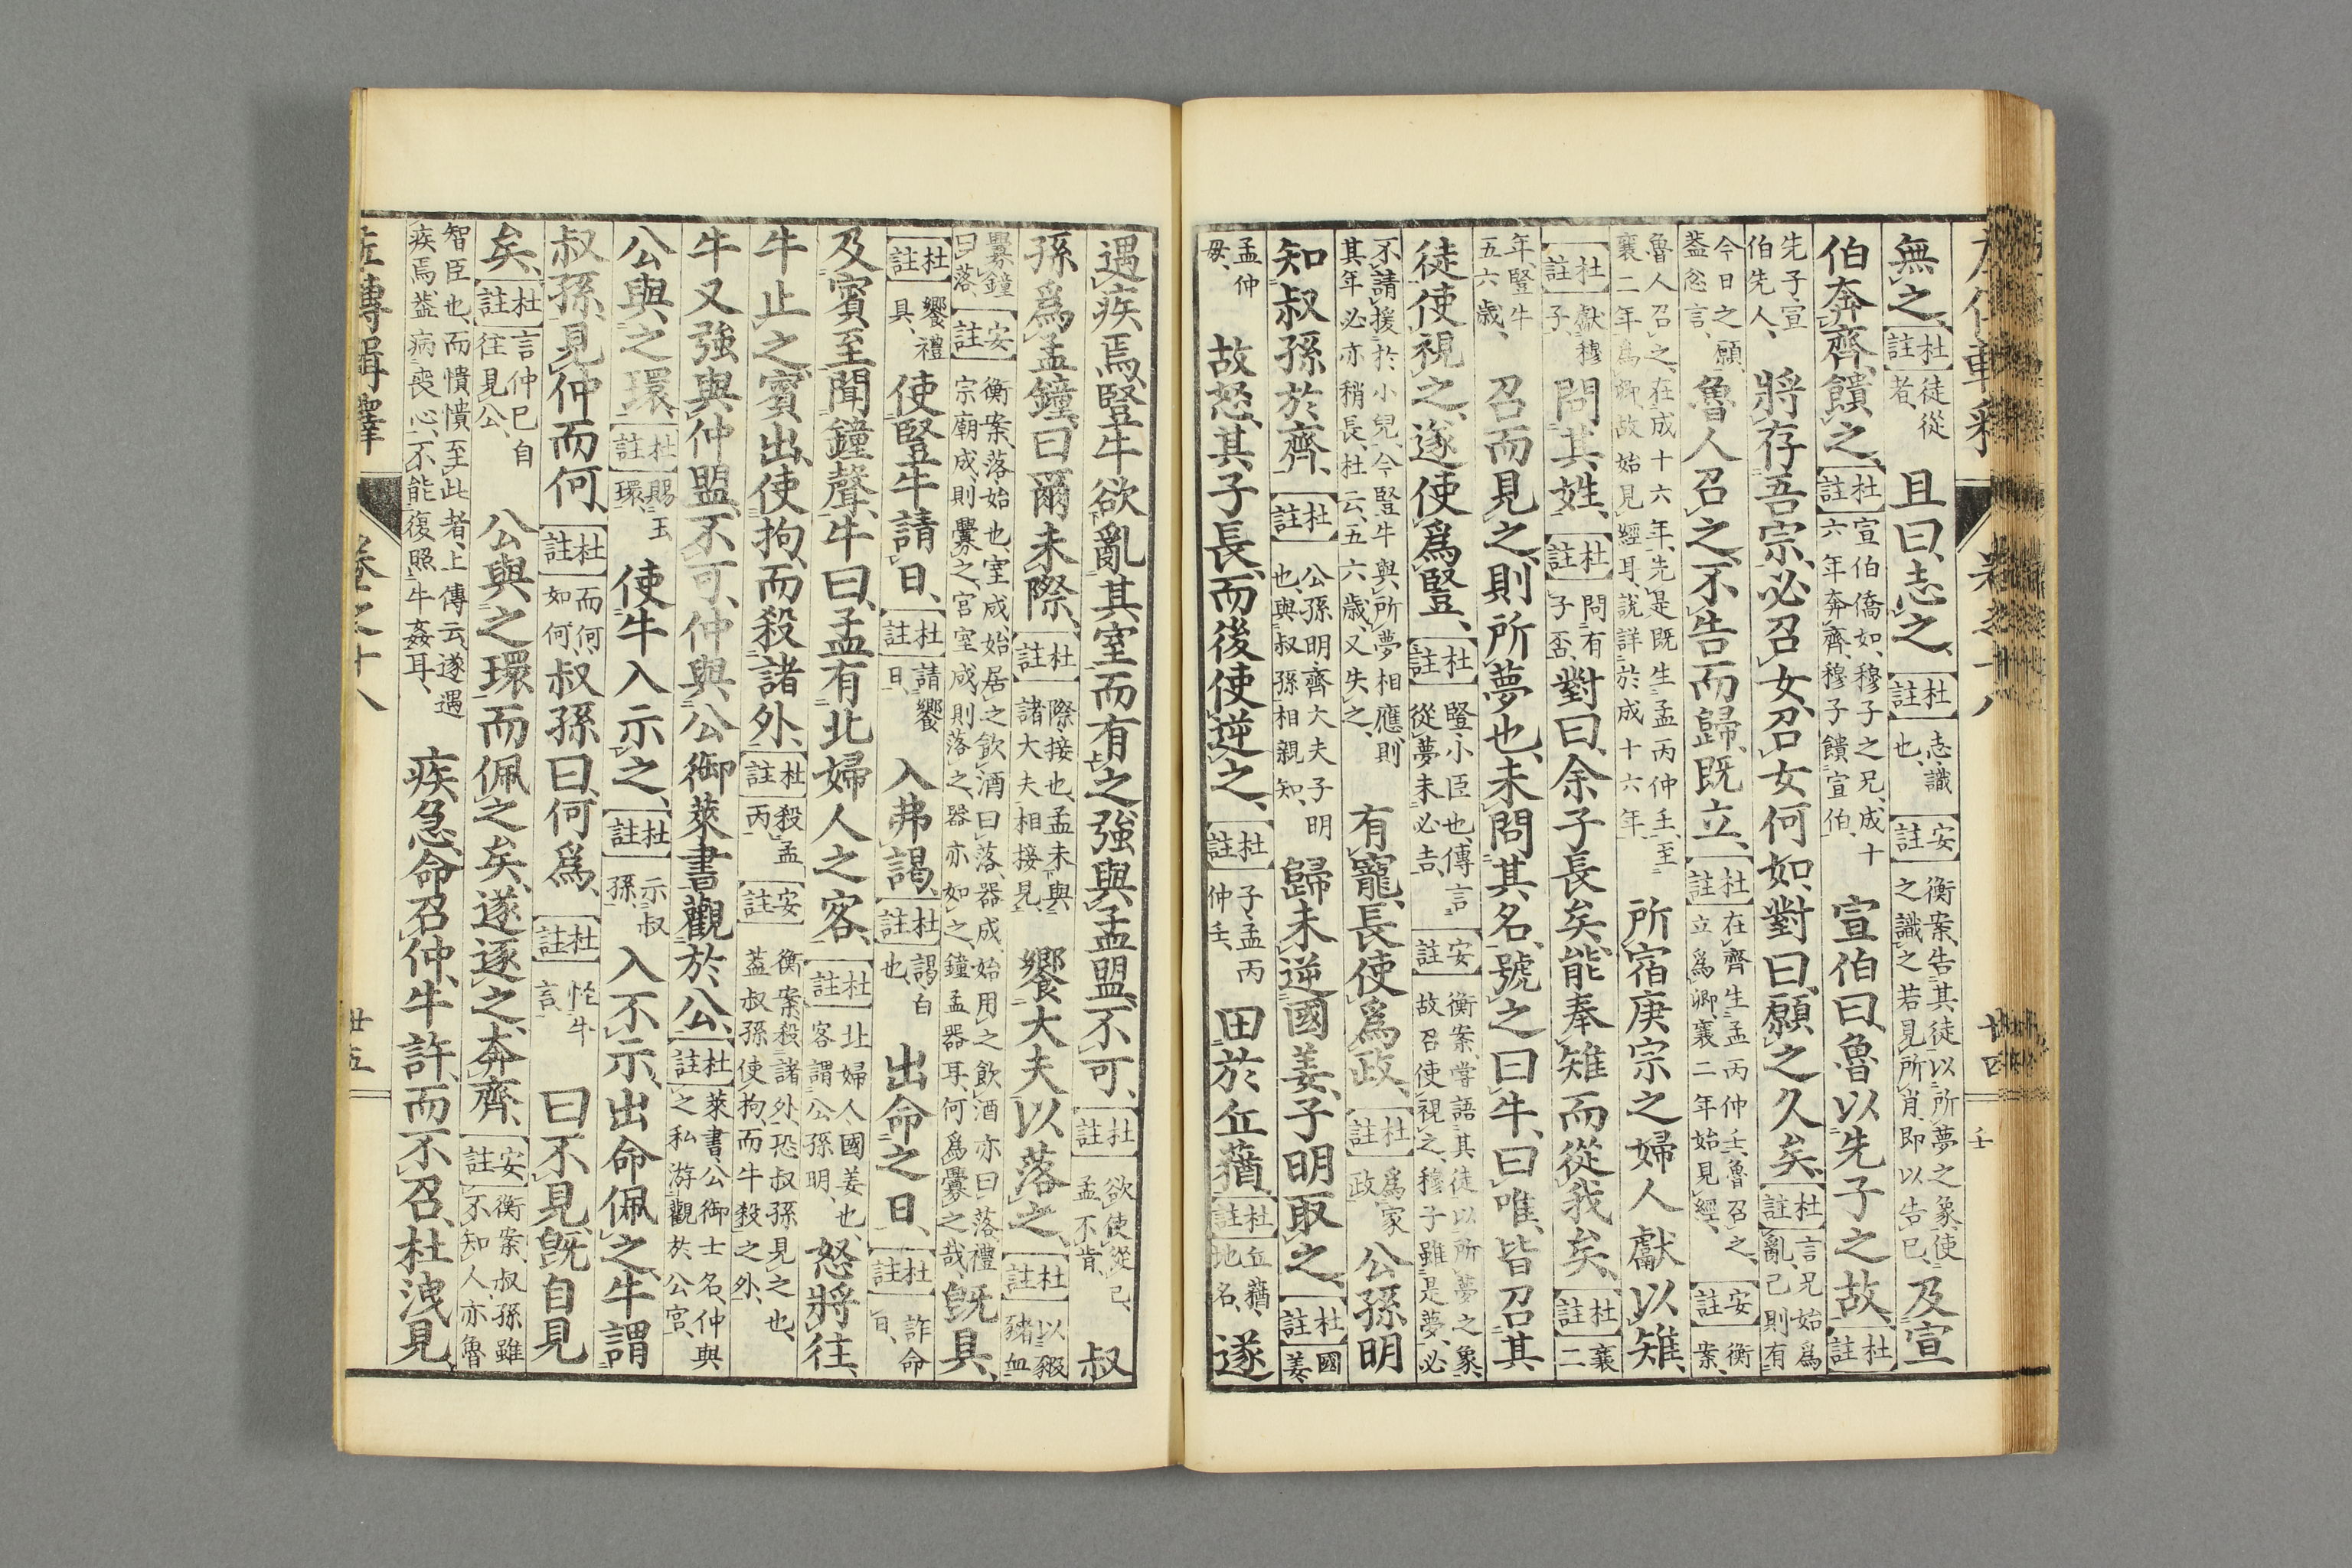 無之、【杜註】徒從者、且曰、志之、【杜註】志、識也、【安註】衡案、告其徒以所夢之象、使之識之、若見所肖、即以告已、及宣
伯奔齊、饋之、【杜註】宣伯僑如、穆子之兄、成十六年奔齊、穆子饋宣伯、宣伯曰、魯以先子之故、【杜註】
先子、宣伯先人、將存吾宗、必召女、召女何如、對曰、願之久矣、【杜註】言兄始爲亂、己則有
今日之願、蓋忿言、魯人召之、不告而歸、既立、【杜註】在齊生孟丙仲壬、魯召之、立爲卿、襄二年始見經、【安註】衡案、
魯人召之、在成十六年、先是既生孟丙仲壬、至襄二年爲卿、故始見經耳、説詳於成十六年、所宿庚宗之婦人獻以雉、
【杜註】獻穆子、問其姓、【杜註】問有子否、對曰、余子長矣、能奉雉而從我矣、【杜註】襄二
年、豎牛五六歳、召而見之、則所夢也、未問其名、號之曰牛、曰唯、皆召其
徒使視之、遂使爲豎、【杜註】豎、小臣也、傳言從夢未必吉、【安註】衡案、甞語其徒以所夢之象、故召使視之、穆子雖是夢、必
不請援於小兒、今豎牛與所夢相應、則其年必亦稍長、杜云、五六歳、又失之、有寵、長使爲政、【杜註】爲家政、公孫明
知叔孫於齊、【杜註】公孫明、齊大夫子明也、與叔孫相親知、歸、未逆國姜、子明取之、【杜註】國姜、
孟仲母、故怒、其子長而後使逆之、【杜註】子孟丙仲壬、田於丘蕕、【杜註】丘蕕、地名、遂
左傳輯釋 卷之十八 廿四
遇疾焉、豎牛欲亂其室而有之、強與孟盟、不可、【杜註】欲使從己、孟不肯、叔
孫爲孟鐘、曰、爾未際、【杜註】際、接也、孟未與諸大夫相接見、饗大夫以落之、【杜註】以豭豬血
釁鐘曰落、【安註】衡案、落、始也、室成、始居之飲酒曰落、器成、始用之飲酒亦曰落、禮宗廟成、則釁之、宮室成、則落之、器亦如之、鐘孟器耳、何爲釁之哉、既具、
【杜註】饗禮具、使豎牛請日、【杜註】請饗日、入弗謁、【杜註】謁、白也、出命之日、【杜註】詐命日、
及賓至、聞鐘聲、牛曰、孟有北婦人之客、【杜註】北婦人、國姜也、客謂公孫明、怒將往、
牛止之、賓出、使拘而殺諸外、【杜註】殺孟丙、【安註】衡案、殺諸外、恐叔孫見之也、蓋叔孫使拘、而牛殺之外、
牛又強與仲盟、不可、仲與公御萊書觀於公、【杜註】萊書、公御士名、仲與之私游觀於公宮、
公與之環、【杜註】賜玉環、使牛入示之、【杜註】示叔孫、入不示、出命佩之、牛謂
叔孫、見仲而何、【杜註】而何、如何、叔孫曰、何爲、【杜註】怪牛言、曰、不見、既自見
矣、【杜註】言仲已自往見公、公與之環、而佩之矣、遂逐之、奔齊、【安註】衡案、叔孫雖不知人、亦魯
智臣也、而憒憒至此者、上傳云、遂遇疾焉、蓋病喪心、不能復照牛姦耳、疾急、命召仲、牛許而不召、杜洩見
左傳輯釋 卷之十八 廿五